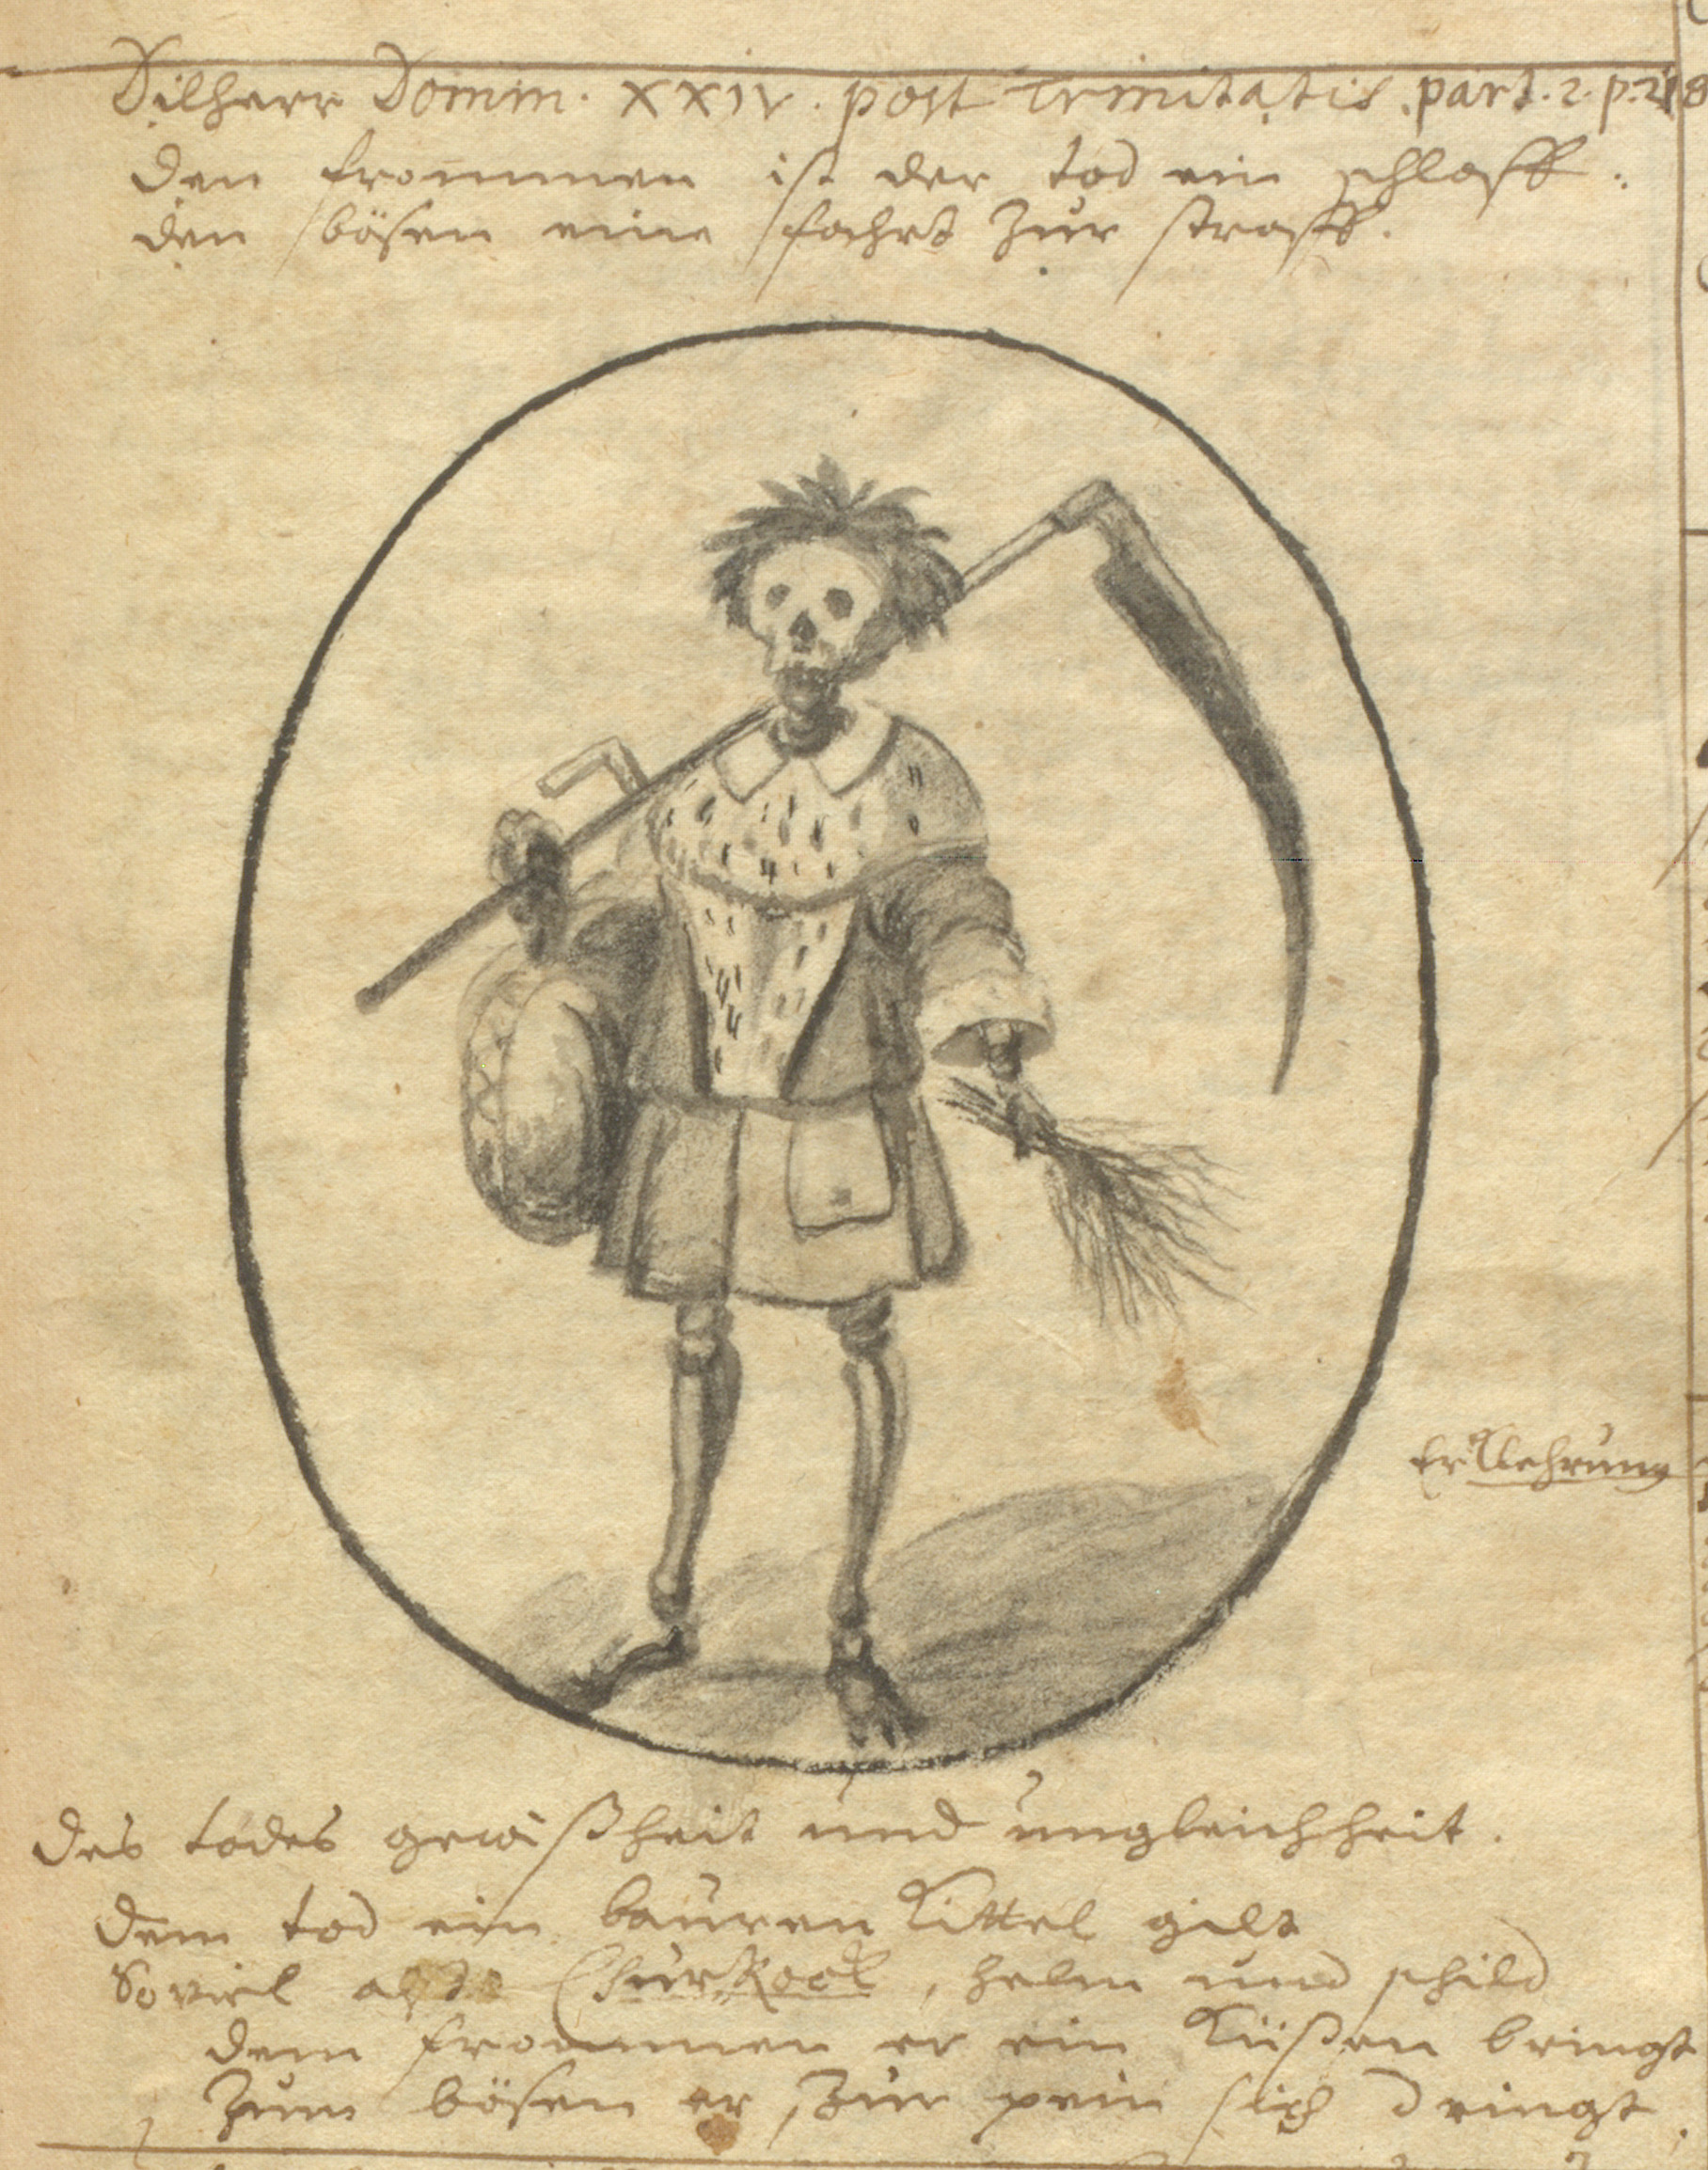 Dilherr Domin. XXIV. post Trinitatis. part. 2. p. 218
den frommen ist der tod ein schlaff.
den bösen eine fahrt zur straff.
Erklehrung
des todes gewißheit und ungleichheit.
dem tod ein bauren Kittel gilt
So viel alß Churrock, helm und schild
dem frommen er ein Küßen bringt
Zum bösen er zur pein sich dringt.